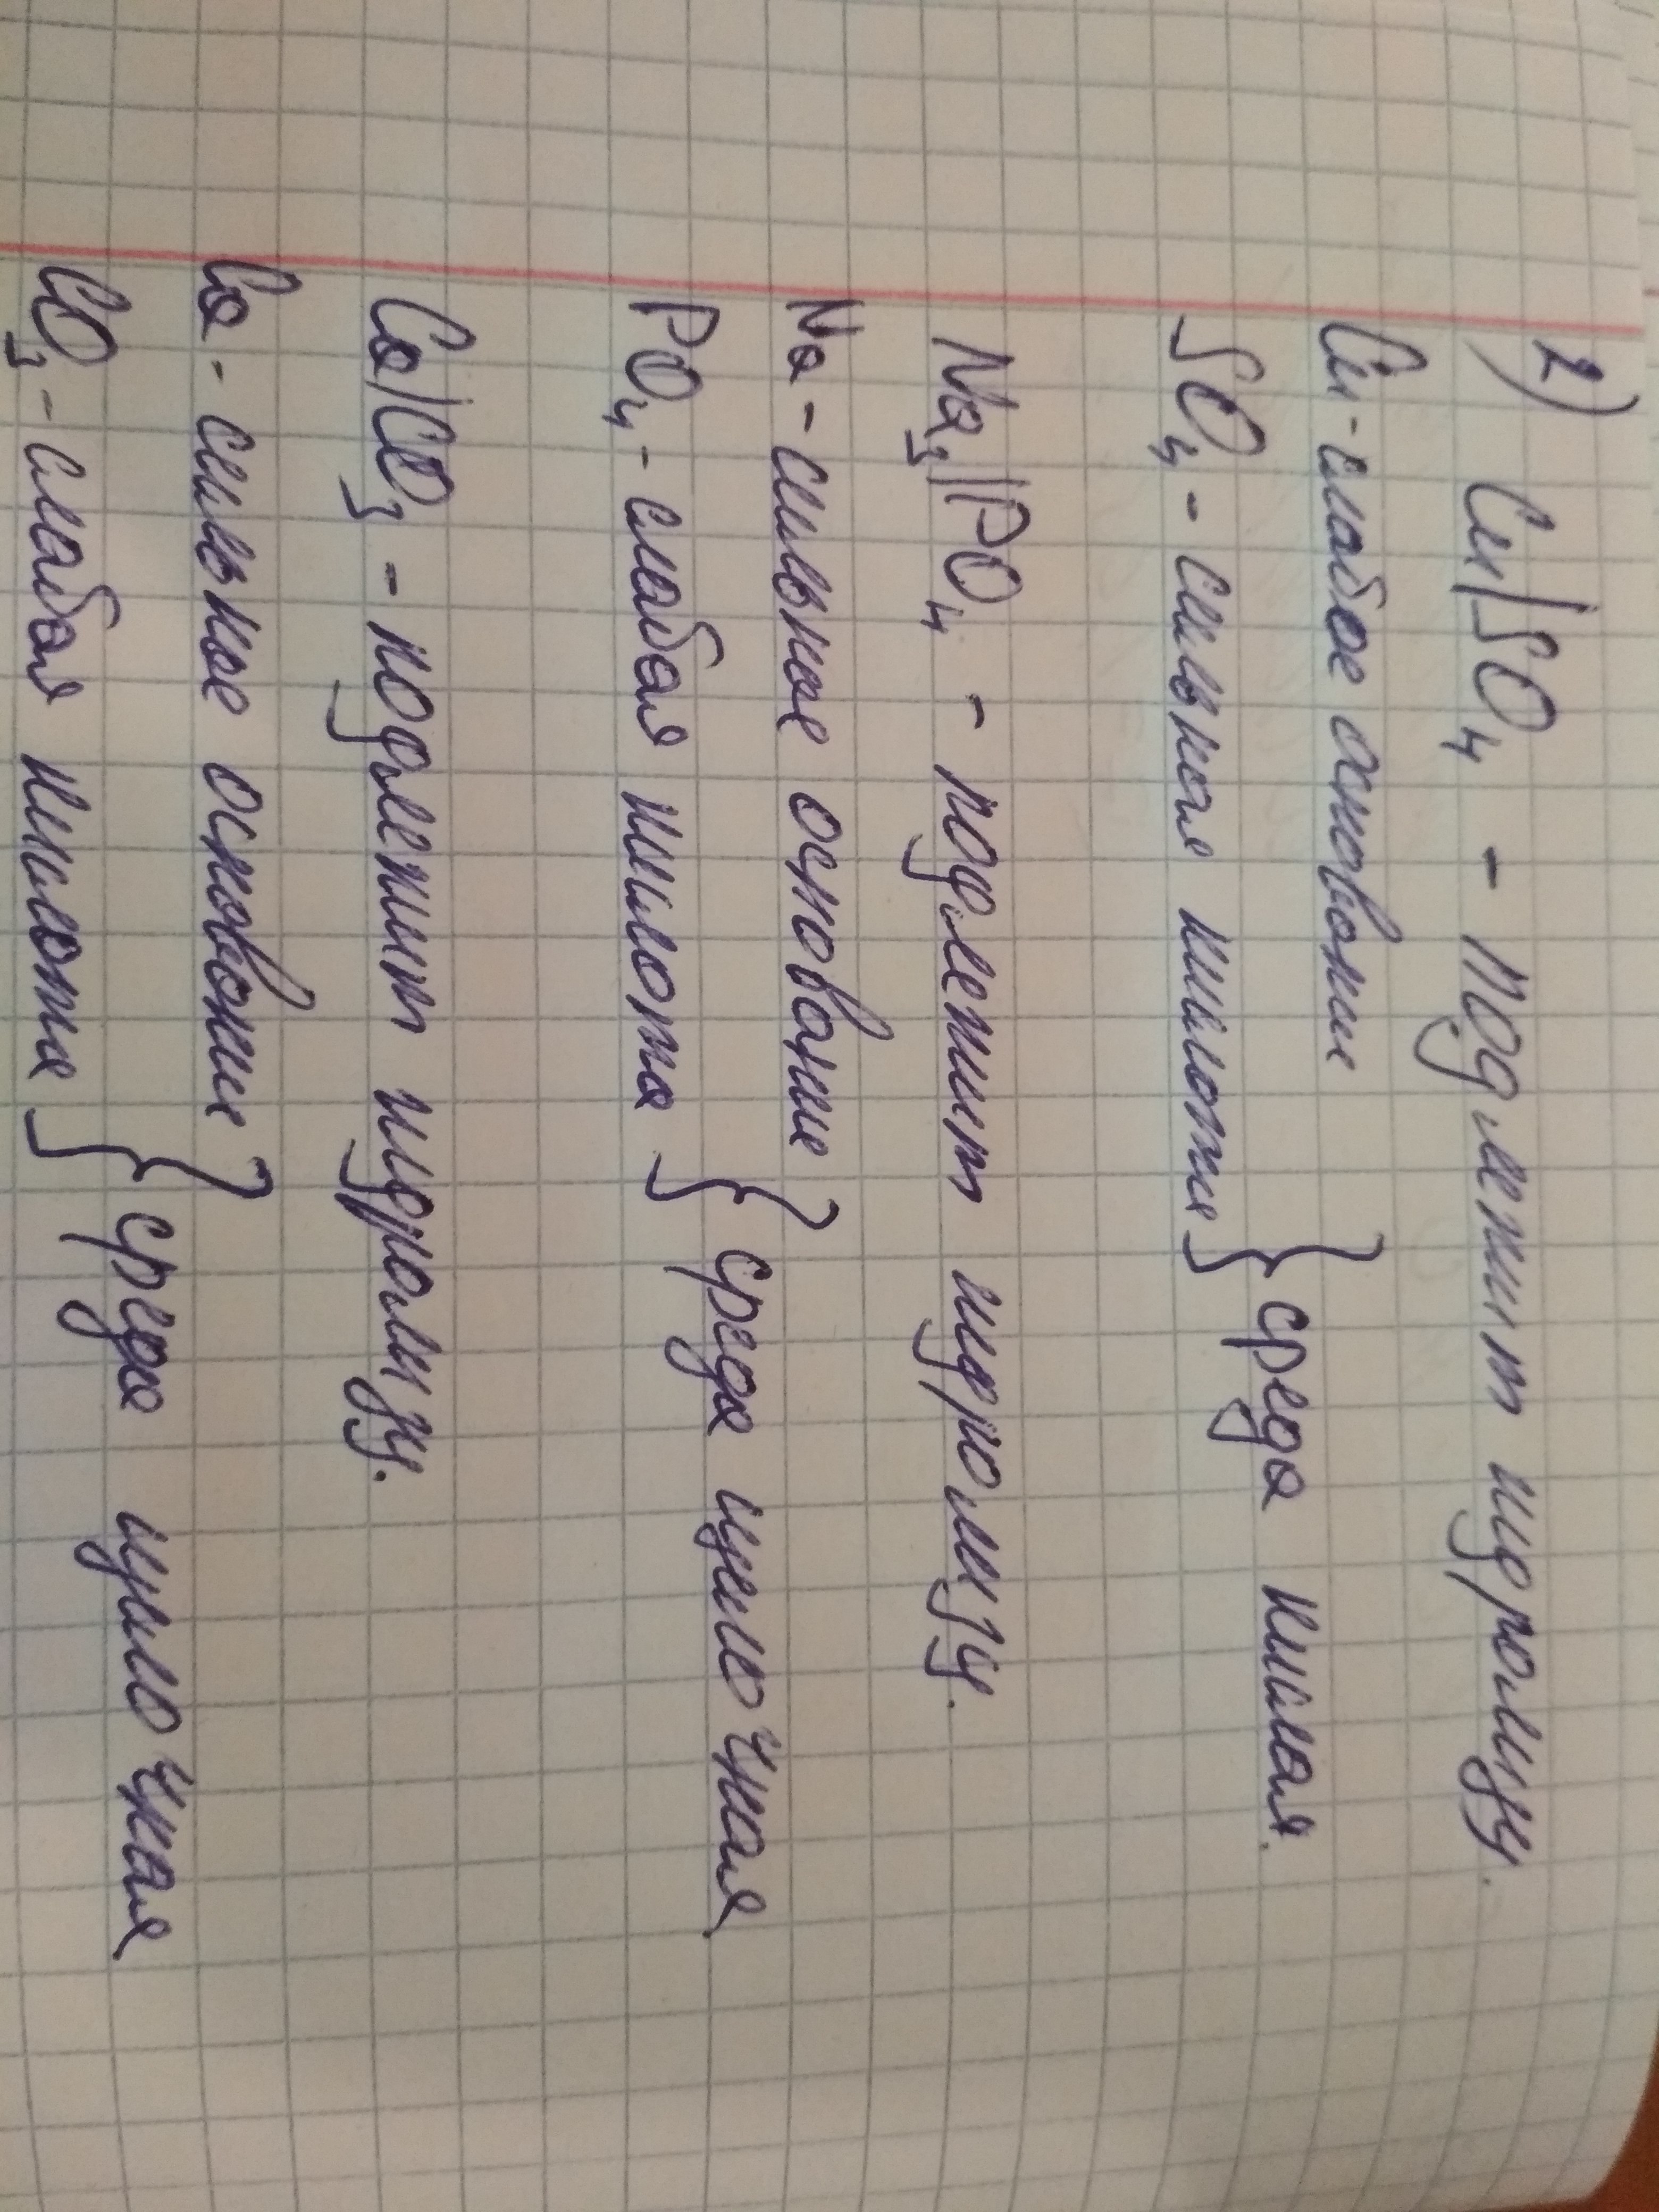 2) Cu|SO₄ - подлежит гидролизу.
Cu - слабое основание
SO₄ - сильная кислота } среда кислая.
Na₃|PO₄ - подлежит гидролизу.
Na - сильное основание
PO₄ - слабая кислота } среда щелочная
Ca|CO₃ - подлежит гидролизу.
Ca - сильное основание
CO₃ - слабая кислота } среда щелочная